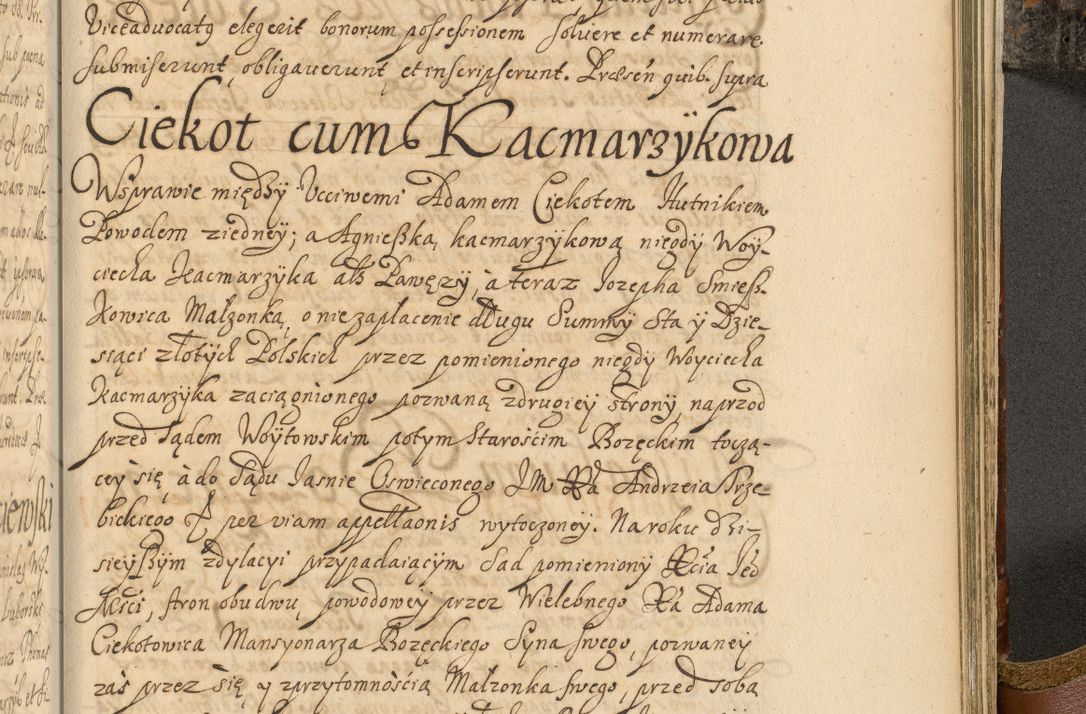 Viceadvocatq elegerit bonorum possessionem soluere et numerare
submiserunt, obligauerunt, et inscripserunt. Præsen quib. supra
Ciekot cum Kacmarzÿkowa
Wsprawie między Vcciwemi Adamem Ciekotem Hutnikiem
Powodem ziedneÿ; a Agnieszką kacmarzÿkową niegdy Woÿ-
ciecha Kacmarzÿka als Pawęzÿ, à teraz Iozepha Smiesz-
kowica Małzonką, o niezapłacenie długu Summÿ Sta ÿ Dzie-
siąci złotÿch Polskich przez pomienionego niegdy Woyciecha
Kacmarzÿka zaciągnionego pozwaną zdrugieÿ stronÿ naprzod
przed Sądem Woÿtowskim potÿm Starościm Bozęckim toczą-
ceÿ się, à do Sądu Iasnie Oswieconego JM Xa Andrzeia Trze-
bickiego per viam appellaonis wytoczoneÿ. Na roku dzi-
sieÿszÿm zdylacyi przypadaiącÿm Sad pomieniony
stron obudwu, powodoweÿ przez Wielebnego Xa Adama
Ciekotowica Mansyonarza Bozęckiego Sÿna swego, pozwaneÿ
zaś przez się y zprzytomnością Małzonka swego, przed sobą